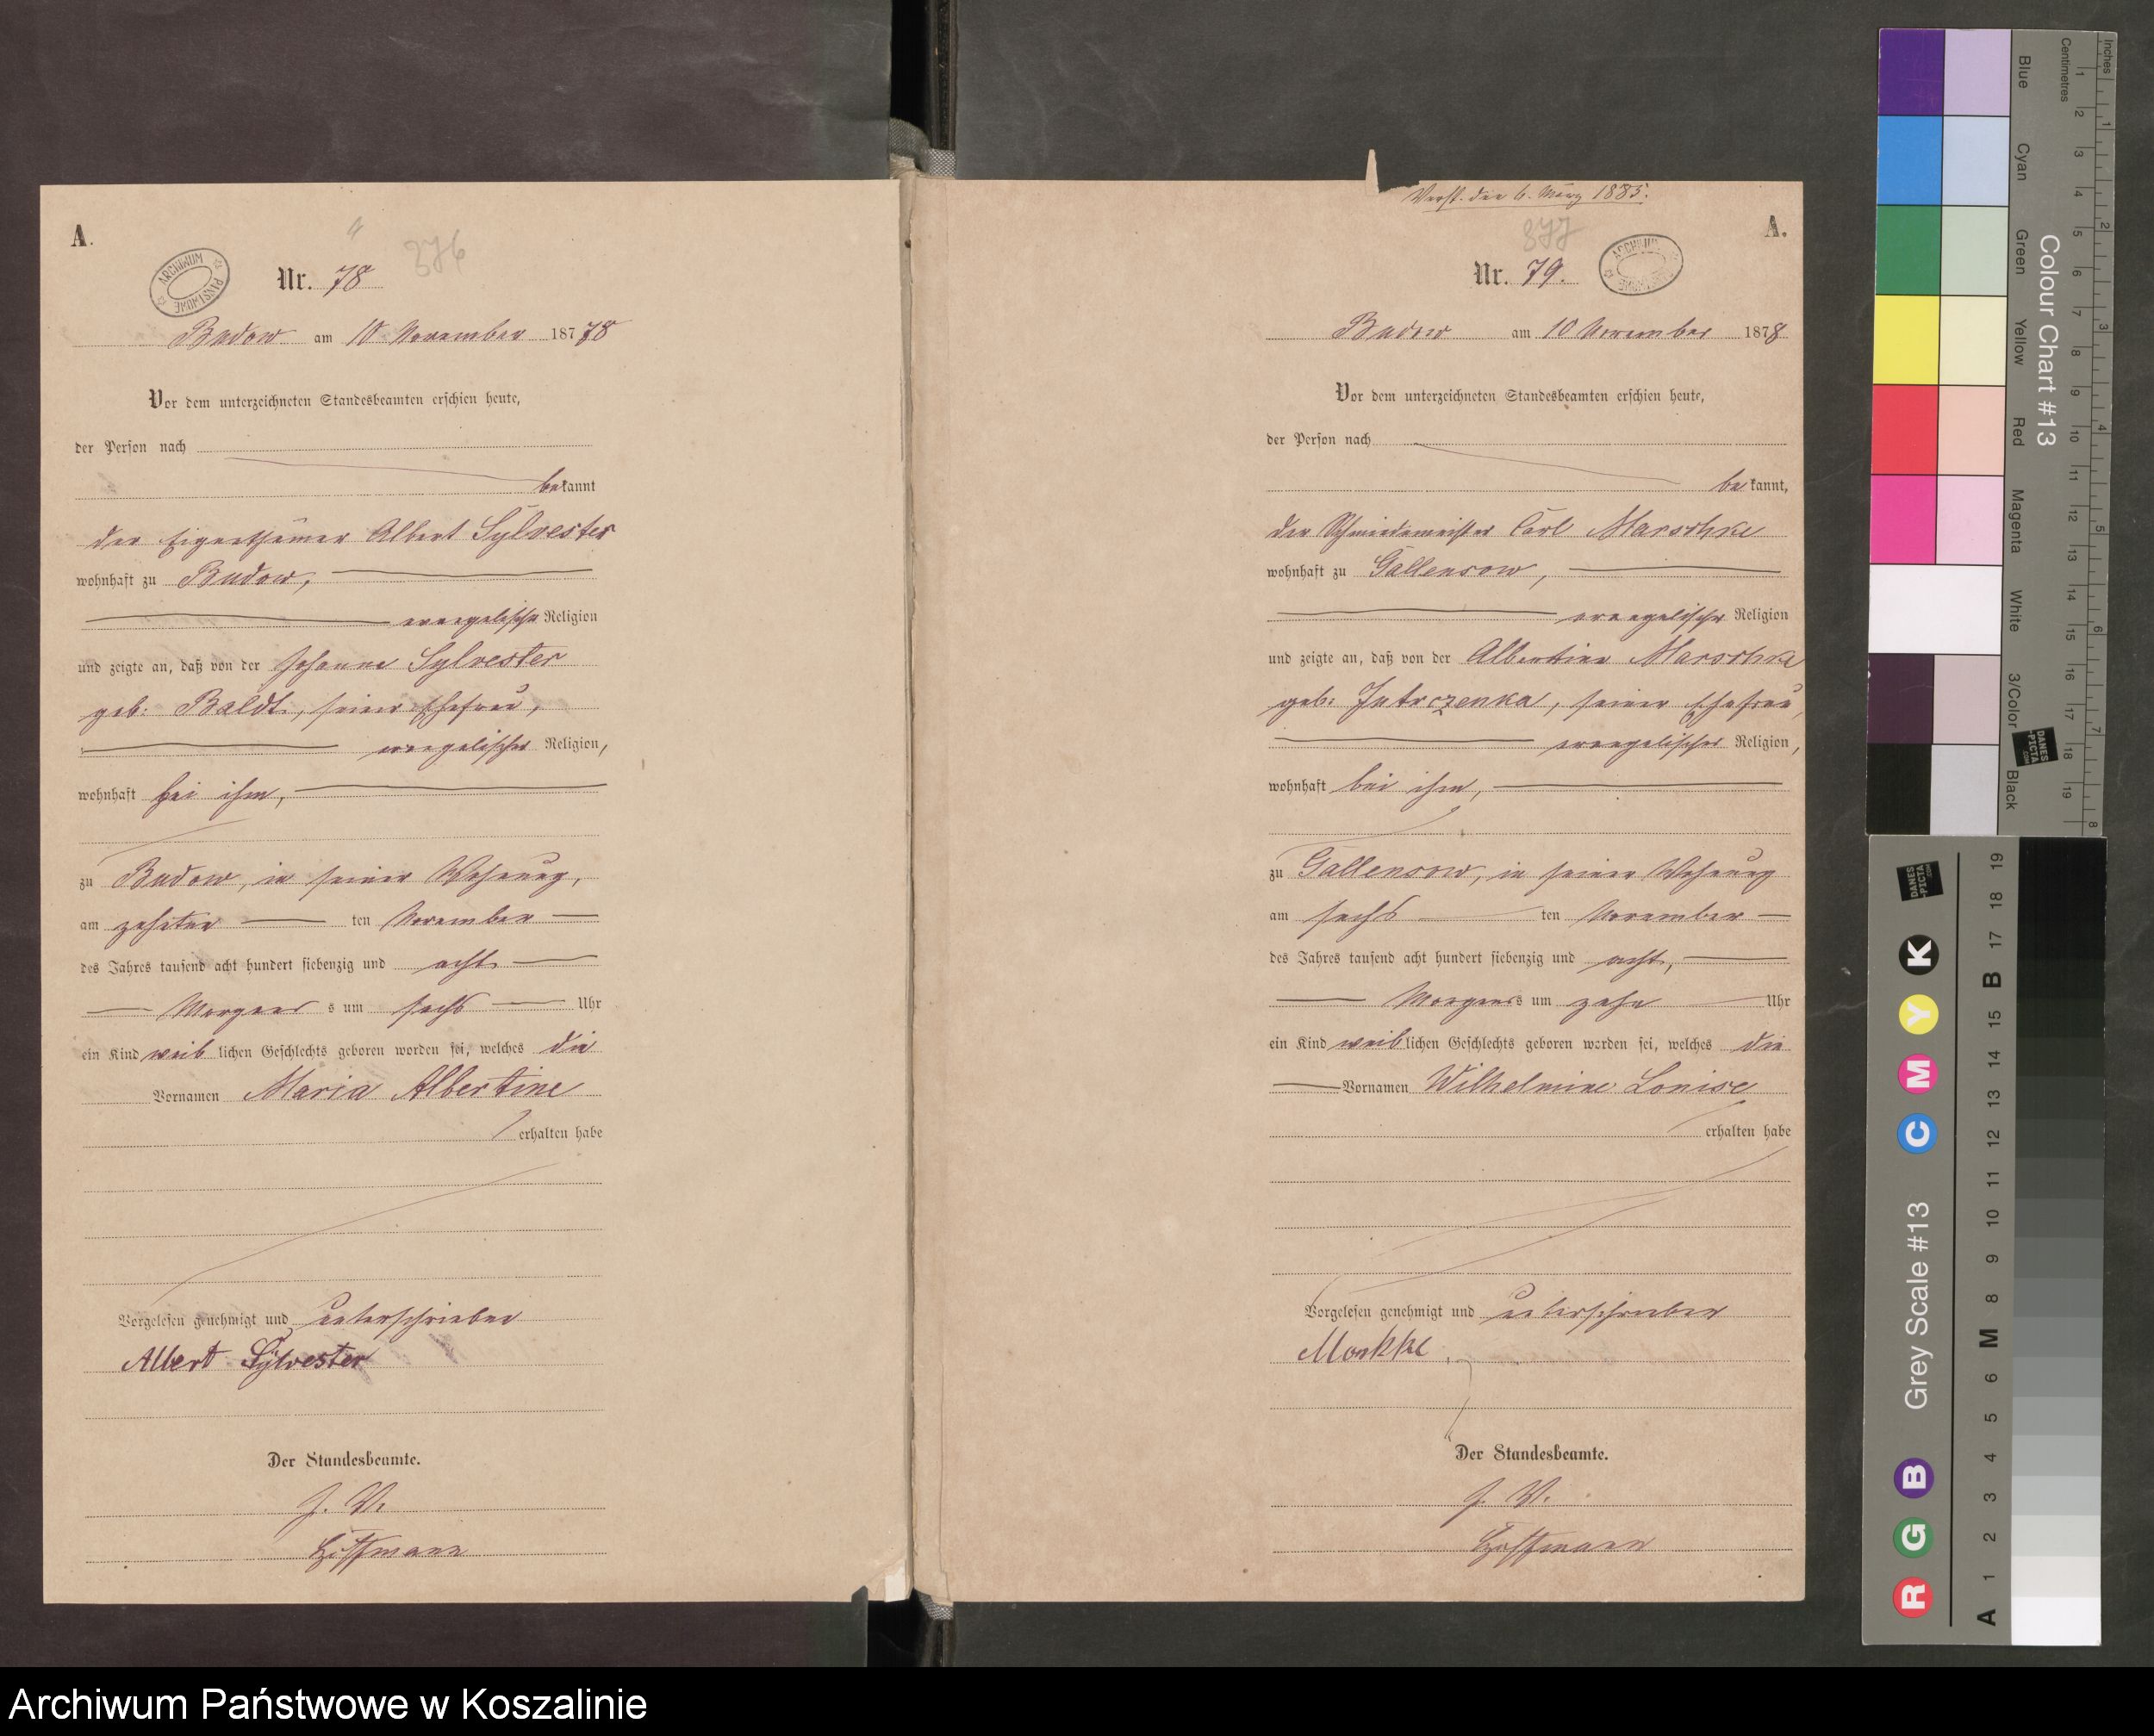 A.
376
ARCHIWUM PAŃSTWOWE
Nr. 78
Budow am 10 November 18778
Vor dem unterzeichneten Standesbeamten erschien heute,
der Person nach
bekannt
der Eigenthümer Albert Sylvester
wohnhaft zu Budow,
evangelische Religion
und zeigte an, daß von der Johanne Sylvester
geb: Baldt, seiner Ehefrau,
evangelischer Religion,
wohnhaft bei ihm,
zu Budow, in seiner Wohnung,
am zehnten ten November
des Jahres tausend acht hundert siebenzig und acht
Morgens um sechs Uhr
ein Kind weiblichen Geschlechts geboren worden sei, welches die
Vornamen Maria Albertine
erhalten habe
Vorgelesen genehmigt und unterschrieben
Albert Sylvester
Der Standesbeamte.
J. V.
Hoffmann
Verst. den 6. März 1885.
377
A.
Nr. 79.
Budow am 10 November 1878
Vor dem unterzeichneten Standesbeamten erschien heute,
der Person nach
bekannt,
der Schmiedemeister Carl Marschke
wohnhaft zu Gallensow,
evangelischer Religion
und zeigte an, daß von der Albertine Marschke
geb: Jutrczenka, seiner Ehefrau,
evangelischer Religion,
wohnhaft bei ihm,
zu Gallensow, in seiner Wohnung
am sechs ten November
des Jahres tausend acht hundert siebenzig und acht,
Morgens um zehn Uhr
ein Kind weiblichen Geschlechts geboren worden sei, welches die
Vornamen Wilhelmine Louise
erhalten habe
Vorgelesen genehmigt und unterschrieben
Der Standesbeamte.
J. V.
Hoffmann
Inches 1 2 3 4 5 6 7 8
Centimetres 1 2 3 4 5 6 7 8 9 10 11 12 13 14 15 16 17 18 19
Colour Chart #13
Blue Cyan Green Yellow Red Magenta White 3/Color Black
DANES-PICTA.COM
Grey Scale #13
R G B C M Y K
A 1 2 3 4 5 6 M 8 9 10 11 12 13 14 15 B 17 18 19
DANES-PICTA.COM
Archiwum Państwowe w Koszalinie